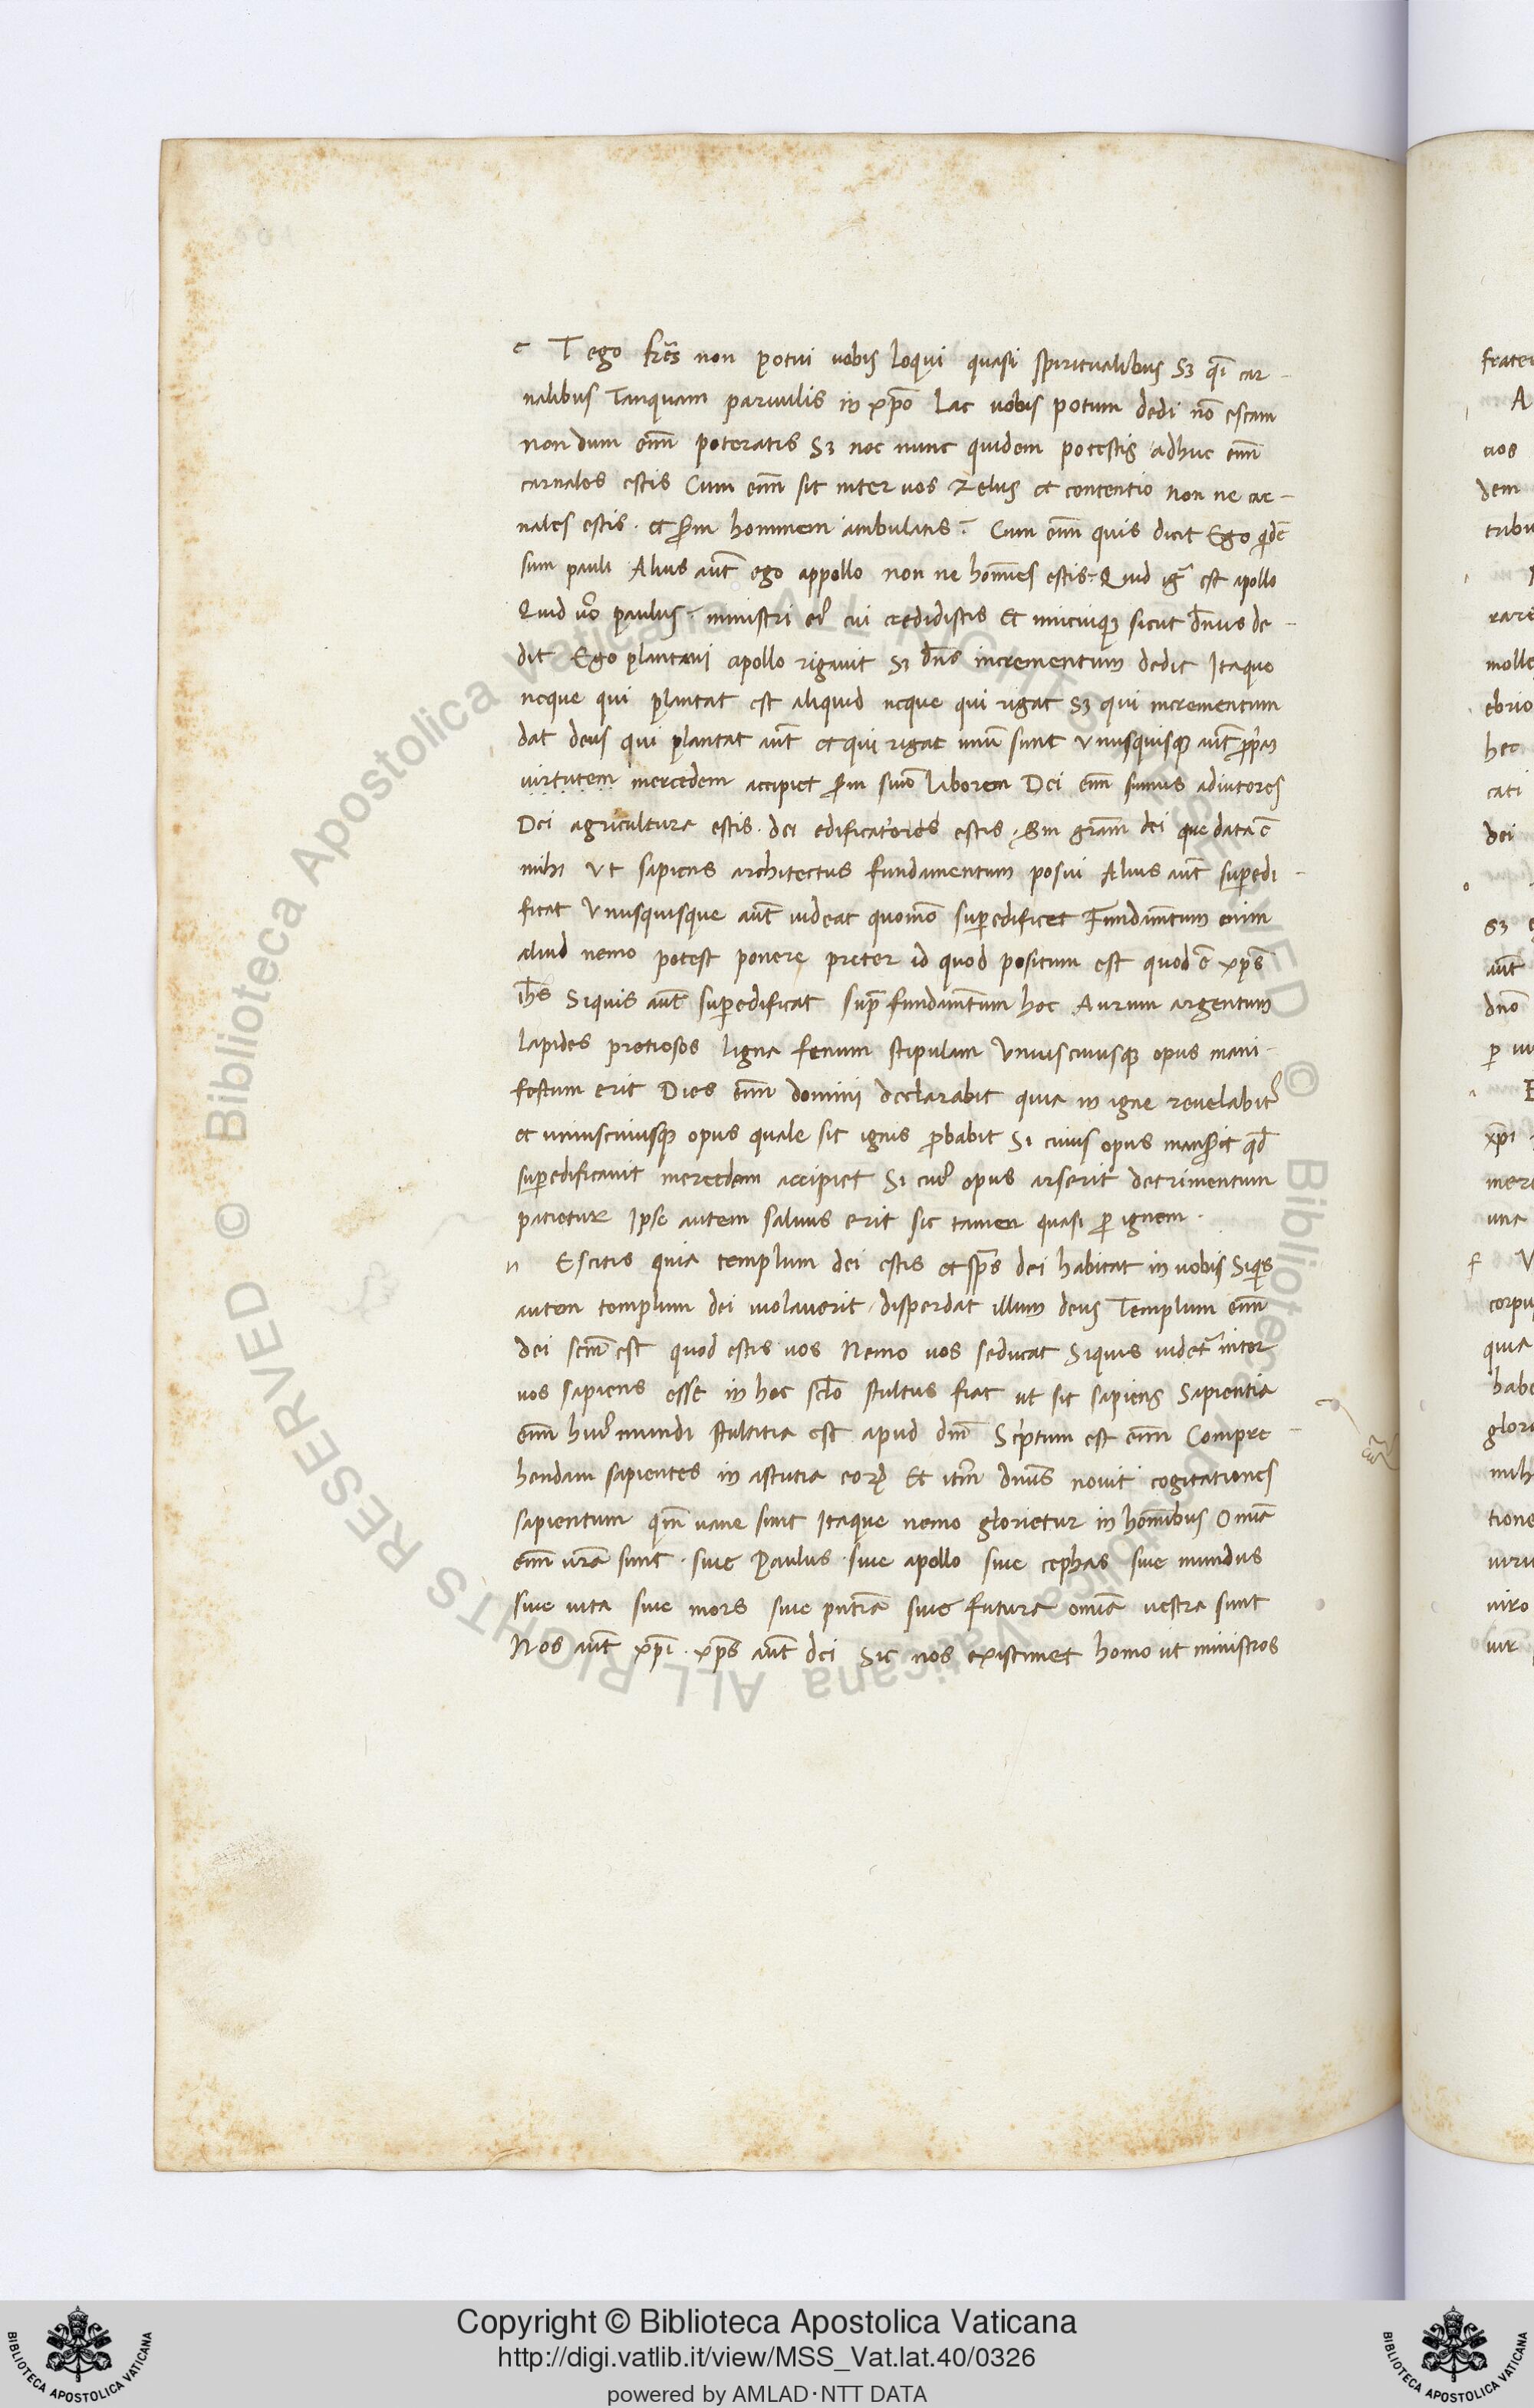 e T ego fr̃es non potui uobis loqui quasi spiritualibus Sꝫ q̃i car-
nalibus Tanquam paruulis in xp̃o Lac uobis potum dedi nõ escam
non dum eni͠m poteratis Sꝫ nec nunc quidem potestis adhuc eni͠m
carnales estis Cum eni͠m sit inter uos zelus et contentio non ne car-
nales estis · et s̃m hominem ambulatis? Cum eni͠m quis dicit Ego q̃dẽ
sum pauli Alius aut̃ ego appollo non ne homi͠es estis? Quid ig̃r est apollo
Quid ũo paulus? ministri ei᷒ cui credidistis Et unicuiqꝫ sicut dñus de-
dit Ego plantaui apollo rigauit Sꝫ dñs incrementum dedit Itaque
neque qui plantat est aliquid neque qui rigat sꝫ qui incrementum
dat deus qui plantat aut̃ et qui rigat unũ sunt Vnusquisqꝫ aut̃ p̱p̱m̃
virtutem mercedem accipiet s̃m suũ laborem Dei eni͠m sumus adiutores
Dei agricultura estis · dei edificatores estis · Sm̃ gram̃ dei que data ẽ
mihi Vt sapiens architectus fundamentum posui Alius aut̃ suꝑedi-
ficat Vnusquisque aut̃ uideat quomõ suꝑedificet Fundam̃tum enim
aliud nemo potest ponere preter id quod positum est quod ẽ xp̃s
ih̃s Siquis aut̃ suꝑedificat sup̃ fundam̃tum hoc Aurum argentum
lapides pretiosos ligna fenum stipulam Vniuscuiusqꝫ opus mani-
festum erit Dies eni͠m domini declarabit quia in igne reuelabit᷑
et uniuscuiusqꝫ opus quale sit ignis ꝓbabit Si cuius opus manserit qd̃
suꝑedificauit mercedem accipiet Si cui᷒ opus arserit detrimentum
patietur Ipse autem saluus erit sic tamen quasi ꝑ ignem ·
n Escitis quia templum dei estis et sp̃s dei habitat in uobis Siq̃s
autem templum dei uiolauerit · disperdat illum deus Templum eni͠m
dei scm̃ est quod estis uos Nemo uos seducat Siquis uidet᷑ inter
uos sapiens esse in hoc scl̃o stultus fiat ut sit sapiens Sapientia
eni͠m hui᷒ mundi stultitia est apud dm̃ Sc̃ptum est eni͠m Compre-
hendam sapientes in astutia eoꝝ Et itm̃ dñus nouit cogitationes
sapientum qm̃ uane sunt Itaque nemo glorietur in hom̃ibus Omĩa
eni͠m ur̃a sunt · siue Paulus · siue apollo siue cephas siue mundus
siue uita siue mors siue pñtia siue futura omĩa uestra sunt
Nos aut̃ xp̃i · xp̃s aut̃ dei Sic nos existimet homo ut ministros
frater
A
dem
tribu
rare
molle
ebrio
hec
cati
dei
Sꝫ
aut̃
dnõ
xp̃i
una
corpu
quia
habe
mih
tione
uiro
Copyright © Biblioteca Apostolica Vaticana
http://digi.vatlib.it/view/MSS_Vat.lat.40/0326
powered by AMLAD·NTT DATA
BIBLIOTECA APOSTOLICA VATICANA
BIBLIOTECA APOSTOLICA VATICANA
© Biblioteca Apostolica Vaticana ALL RIGHTS RESERVED © Biblioteca Apostolica Vaticana ALL RIGHTS RESERVED